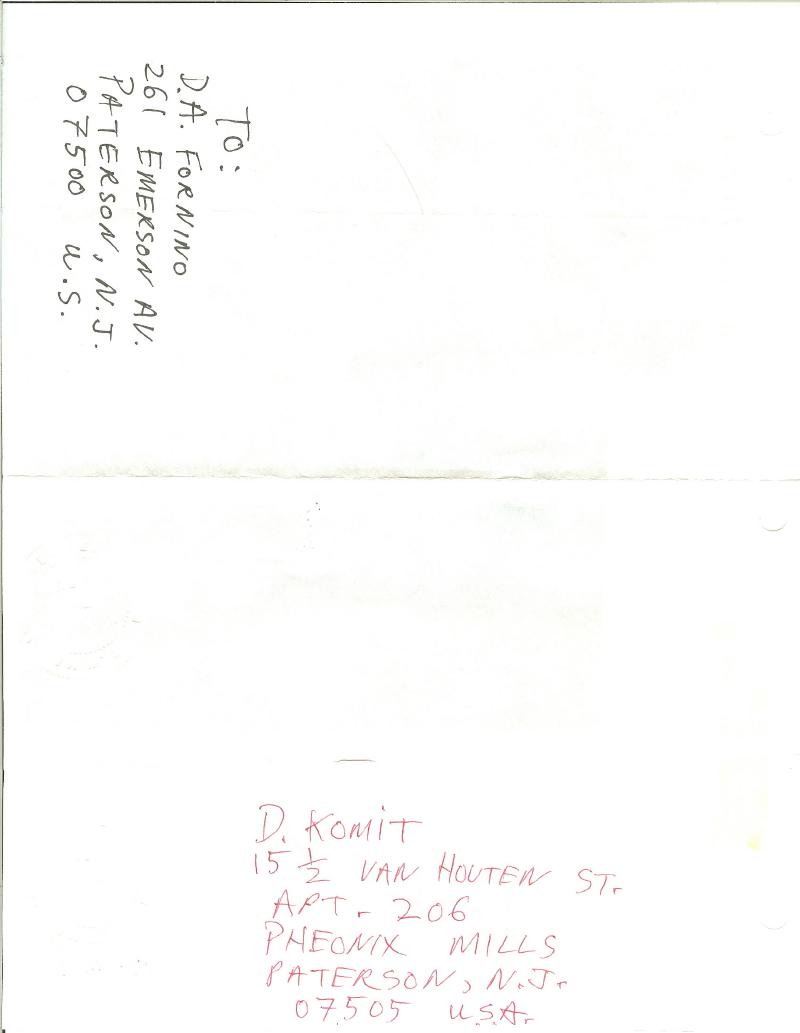 To:
D.A. FORNINO
261 EMERSON AV.
PATERSON, N.J.
07500 U.S.
D. KOMIT
15 ½ VAN HOUTEN ST.
APT. 206
PHEONIX MILLS
PATERSON, N.J.
07505 U.S.A.